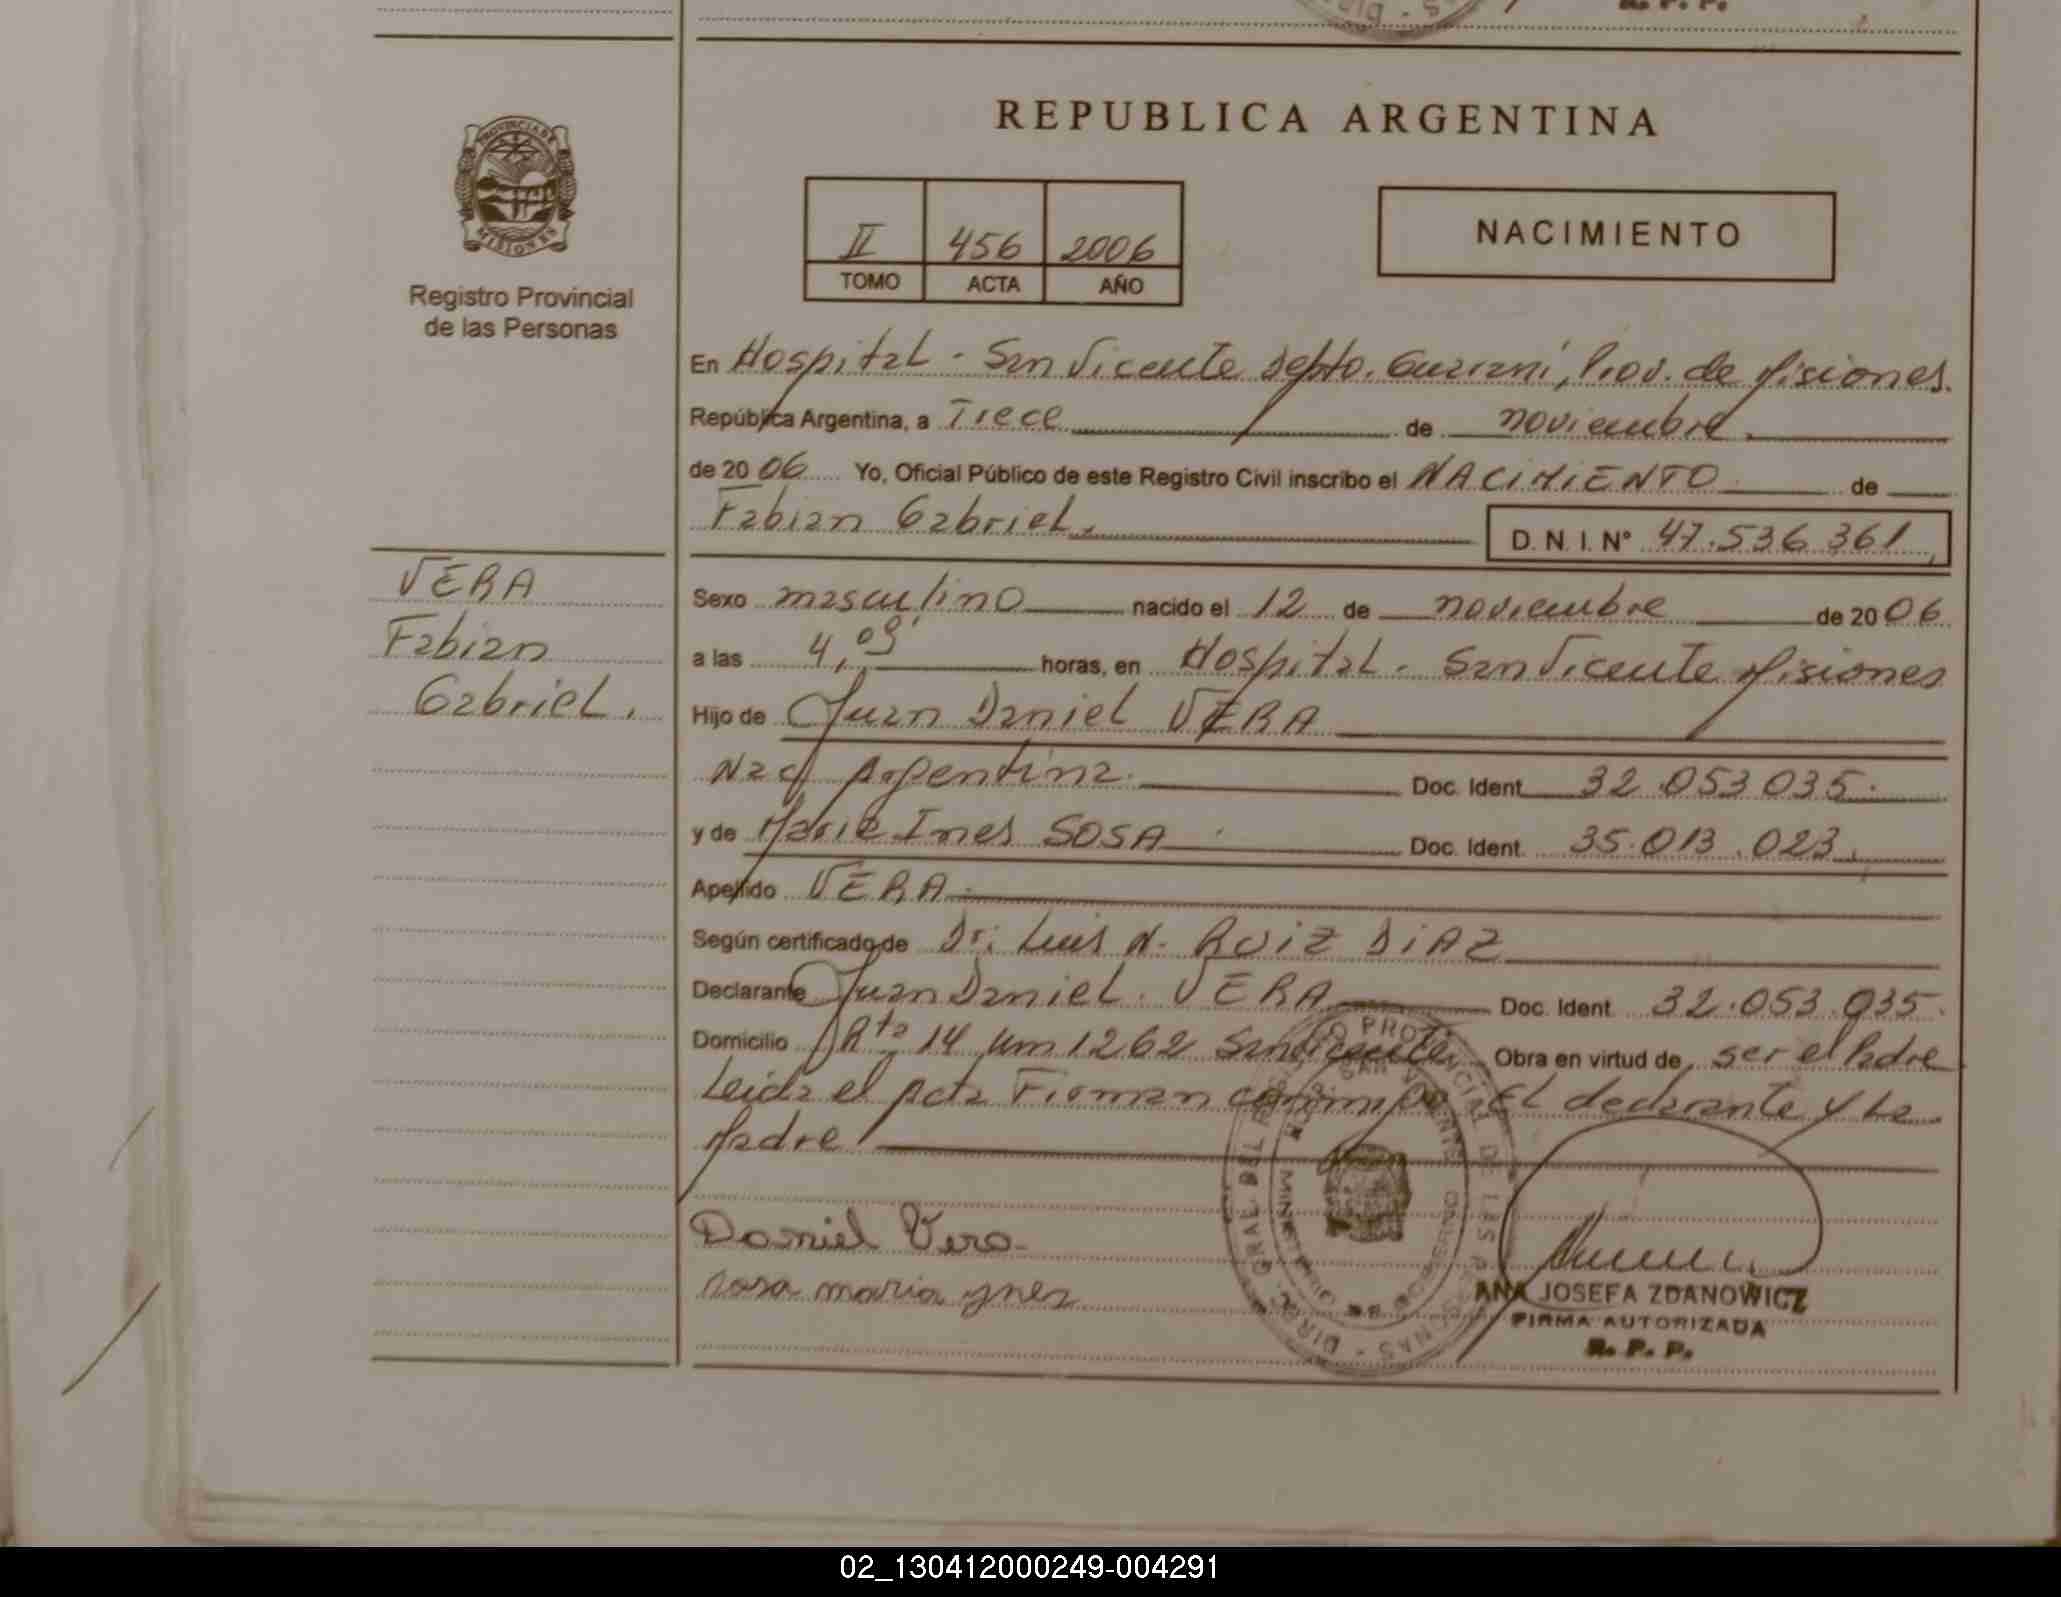 R. P. P.
REPUBLICA ARGENTINA
PROVINCIA DE
MISIONES
Registro Provincial
de las Personas
II 456 2006
TOMO ACTA AÑO
NACIMIENTO
En Hospital - San Vicente Depto. Guaraní, Prov. de Misiones.
República Argentina, a Trece de noviembre
de 2006 Yo, Oficial Público de este Registro Civil inscribo el NACIMIENTO de
Fabian Gabriel. D. N. I. Nº 47.536.361
VERA
Fabian
Gabriel.
Sexo masculino nacido el 12 de noviembre de 2006
a las 4,09' horas, en Hospital - San Vicente Misiones
Hijo de Juan Daniel VERA
Nac Argentina. Doc. Ident. 32.053.035.
y de Maria Ines SOSA Doc. Ident. 35.013.023
Apellido VERA
Según certificado de Dr. Luis N. RUIZ DIAZ
Declarante Juan Daniel VERA Doc. Ident. 32.053.035.
Domicilio Rta 14 Km 1262 San Vicente Obra en virtud de ser el Padre
Leida el Acta Firman conmigo El declarante y La
Madre
Daniel Vera
sosa maria ynes
ANA JOSEFA ZDANOWICZ
FIRMA AUTORIZADA
R. P. P.
02_130412000249-004291